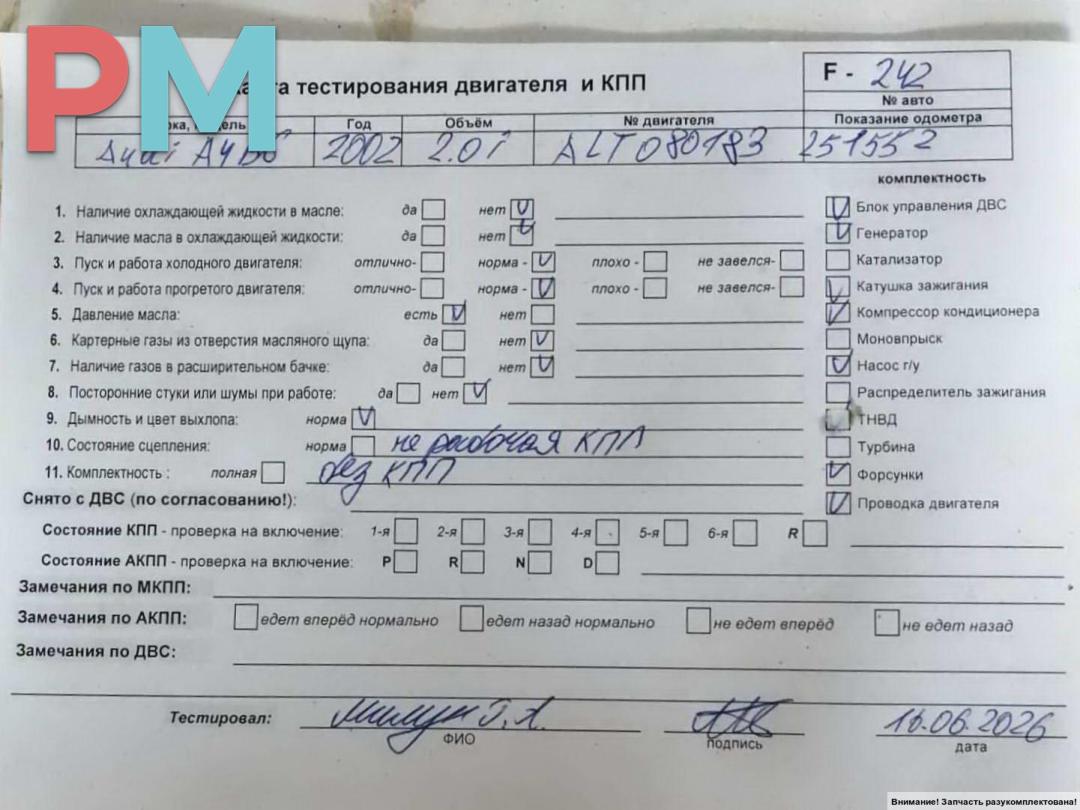 PM
тестирования двигателя и КПП
F - 242
№ авто
Год Объём № двигателя Показание одометра
Audi A4B6 2002 2.0i ALT080183 251552
комплектность
1. Наличие охлаждающей жидкости в масле: да нет V
2. Наличие масла в охлаждающей жидкости: да нет V
3. Пуск и работа холодного двигателя: отлично- норма - V плохо - не завелся-
4. Пуск и работа прогретого двигателя: отлично- норма - V плохо - не завелся-
5. Давление масла: есть V нет
6. Картерные газы из отверстия масляного щупа: да нет V
7. Наличие газов в расширительном бачке: да нет V
8. Посторонние стуки или шумы при работе: да нет V
9. Дымность и цвет выхлопа: норма V
10. Состояние сцепления: норма не рабочая КПП
11. Комплектность : полная без КПП
V Блок управления ДВС
V Генератор
Катализатор
V Катушка зажигания
V Компрессор кондиционера
Моновпрыск
V Насос г/у
Распределитель зажигания
ТНВД
Турбина
V Форсунки
V Проводка двигателя
Снято с ДВС (по согласованию!):
Состояние КПП - проверка на включение: 1-я 2-я 3-я 4-я 5-я 6-я R
Состояние АКПП - проверка на включение: P R N D
Замечания по МКПП:
Замечания по АКПП: едет вперёд нормально едет назад нормально не едет вперёд не едет назад
Замечания по ДВС:
Тестировал: ФИО подпись 16.06.2026 дата
Внимание! Запчасть разукомплектована!